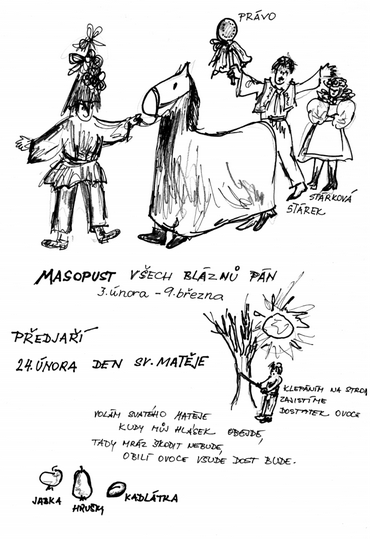 PRÁVO
STÁRKOVÁ
STÁREK
MASOPUST VŠECH BLÁZNŮ PÁN
3. února - 9. března
PŘEDJAŘÍ
24. ÚNORA DEN SV. MATĚJE
KLEPÁNÍM NA STROM
ZAJISTÍME
DOSTATEK OVOCE
VOLÁM SVATÉHO MATĚJE
KUDY MŮJ HLÁSEK OBEJDE,
TADY MRÁZ ŠKODIT NEBUDE,
OBILÍ OVOCE VŠUDE DOST BUDE.
JABKA
HRUŠKY
KADLÁTKA